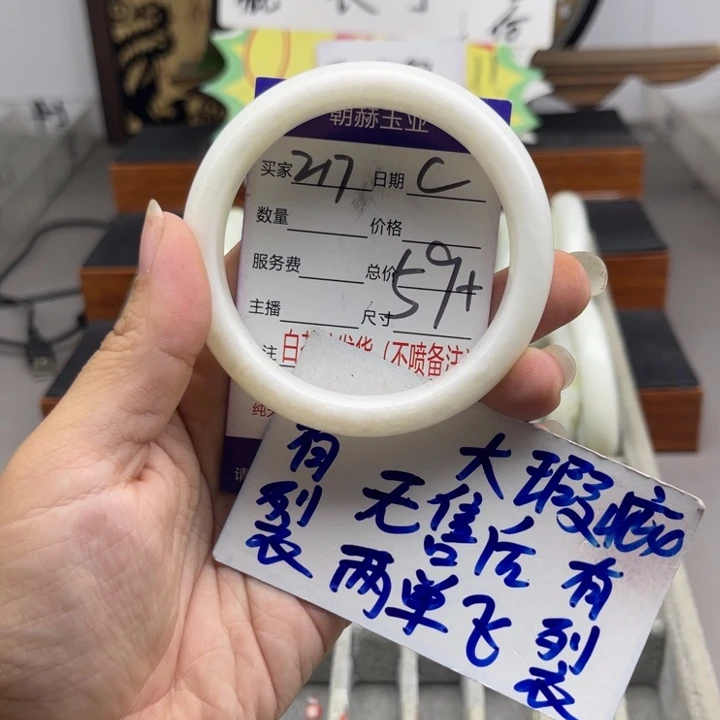 朝赫玉业
买家 217 日期 C
数量 价格
服务费 总价
主播 尺寸 59+
注 发货（不喷备注）
纯
请
大瑕疵
无售后
两单飞
有列衣
有列衣